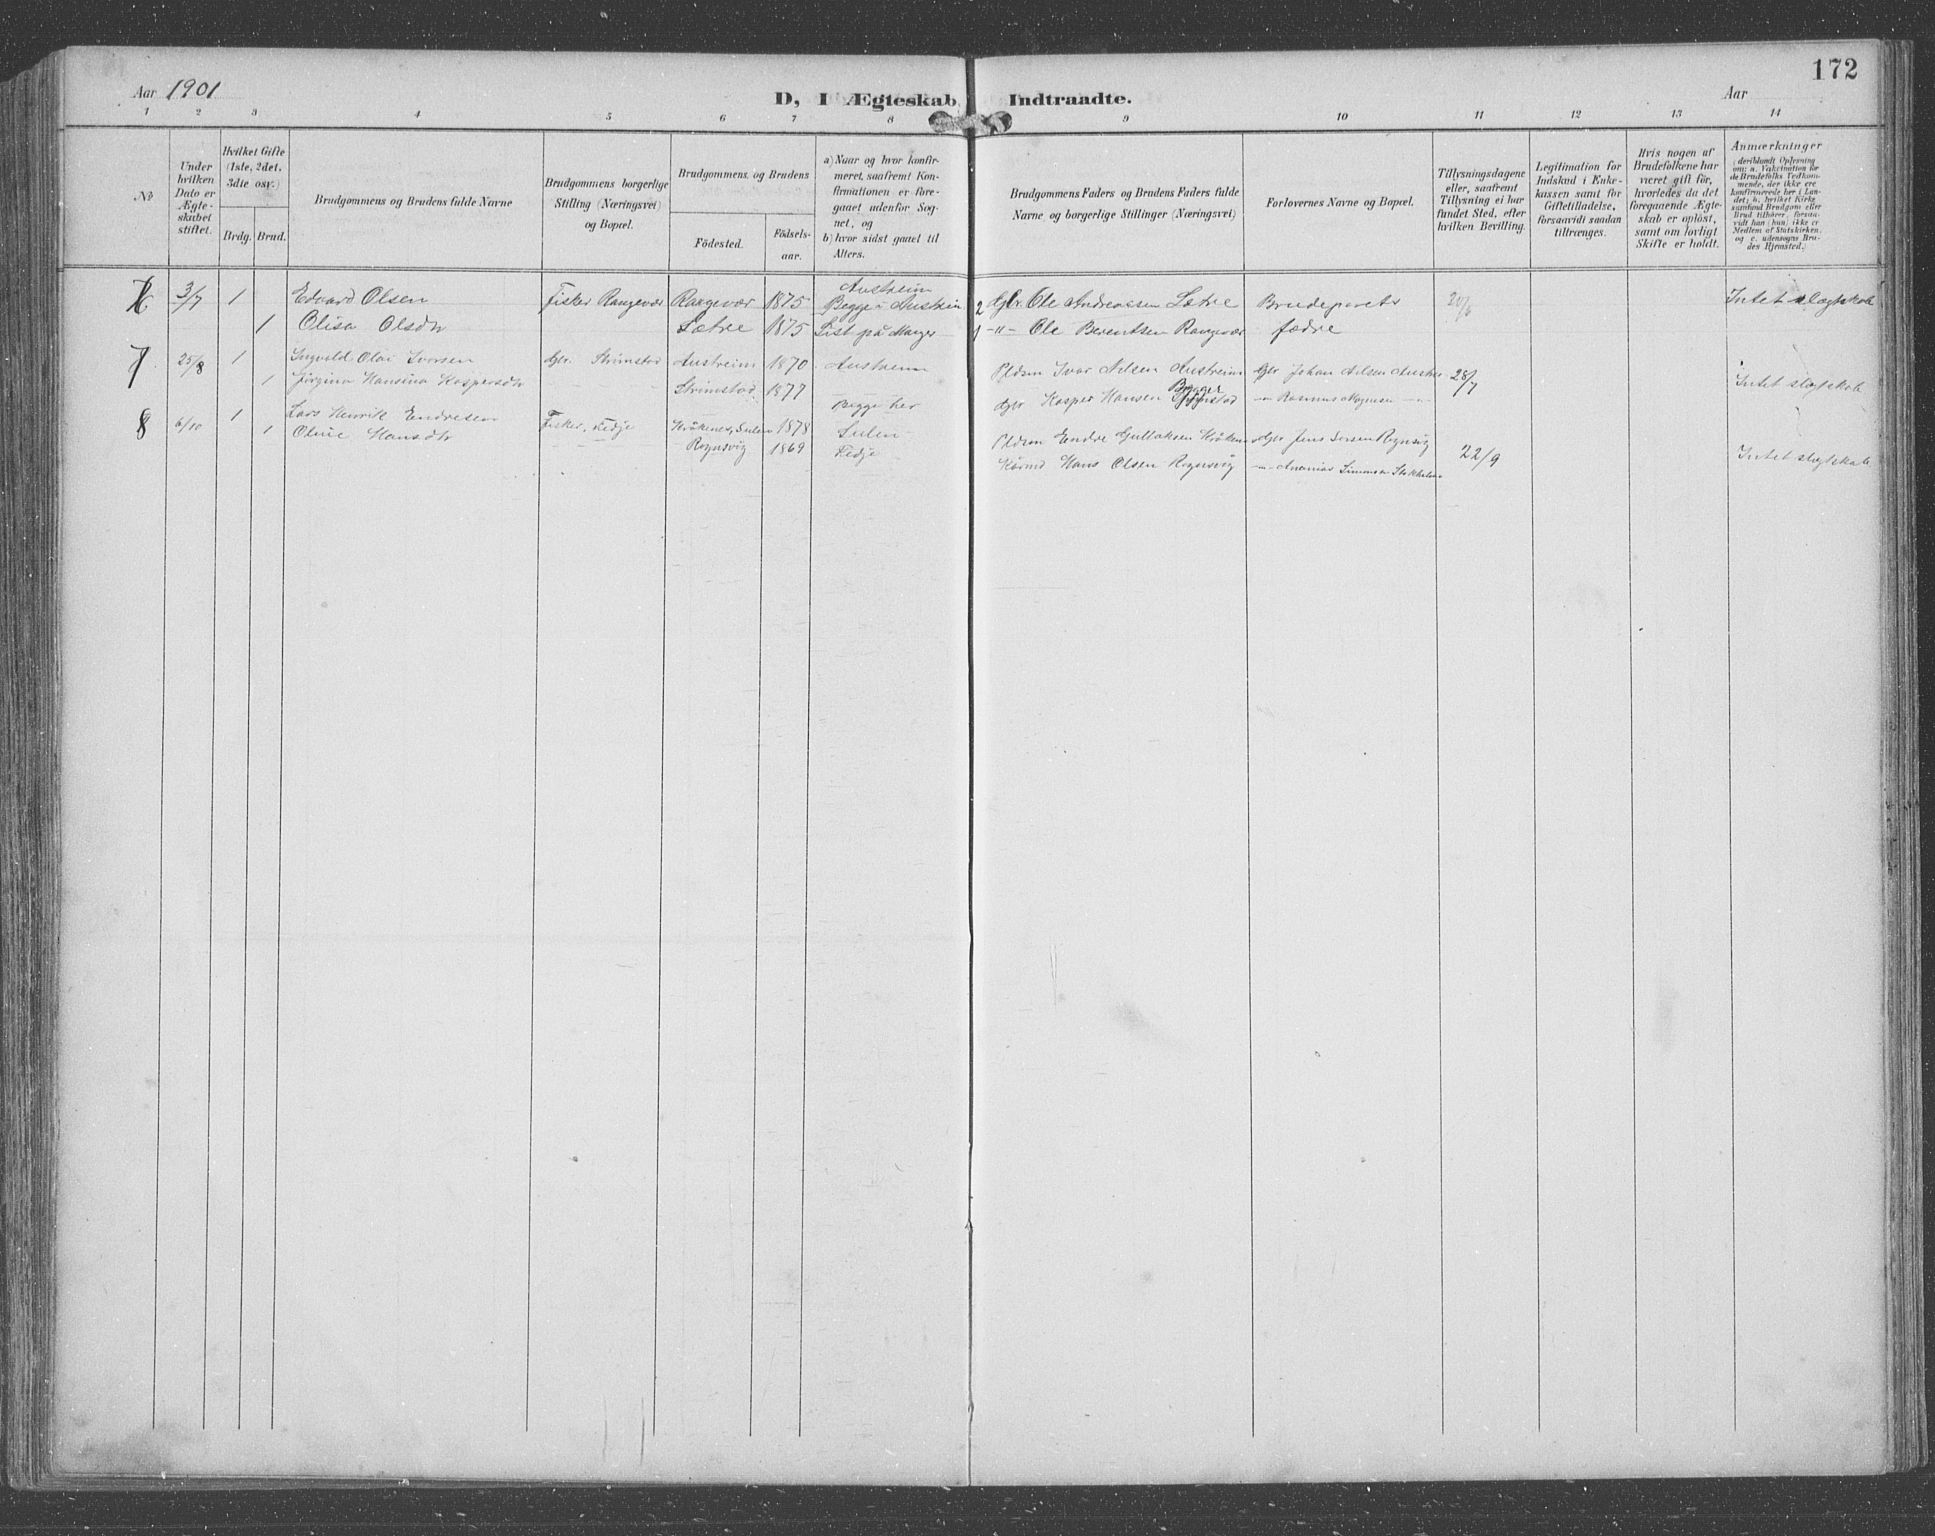 172
Aar 1901
Aar
D, I Ægteskab Indtraadte.
1 2 3 4 5 6 7 8 9 10 11 12 13 14
No
Under hvilken Dato er Ægteskabet stiftet.
Hvilket Gifte (1ste, 2det, 3dte osv.)
Brdg. Brud.
Brudgommens og Brudens fulde Navne
Brudgommens borgerlige Stilling (Næringsvei) og Bopæl.
Brudgommens og Brudens
Födested.
Födsels-aar.
a) Naar og hvor konfir-
meret, saafremt Kon-
firmationen er fore-
gaaet udenfor Sog-
net, og
b) hvor sidst gaaet til
Alters.
Brudgommens Faders og Brudens Faders fulde
Navne og borgerlige Stillinger (Næringsvei)
Forlovernes Navne og Bopæl.
Tillysningsdagene
eller, saafremt
Tillysning ei har
fundet Sted, efter
hvilken Bevilling.
Legitimation for
Indskud i Enke-
kassen samt for
Giftetilladelse,
forsaavidt saadan
tiltrænges.
Hvis nogen af
Brudefolkene har
været gift för,
hvorledes da det
foregaaende Ægte-
skab er oplöst,
samt om lovligt
Skifte er holdt.
Anmærkninger
(deriblandt Oplysning
om: a. Vakcination for
de Brudefolks Vedkom-
mende, der ikke ere
konfirmerede her i Lan-
det; b. hvilket Kirke-
samfund Brudgom eller
Brud tilhører, forsaa-
vidt han (hun) ikke er
Medlem af Statskirken,
og c. udensogns Bru-
des Hjemsted.)
6 3/7 1 Edvard Olsen Fisker Rangevær Rangevær 1875 Austreim Begge i Austreim Gbr. Ole Andreassen Sætre Brudeparets 20/6 Intet slægtskab
1 Olisa Olsdtr Sætre 1875 Sist på Manger -"- Ole Berentsen Rangevær fædre
7 25/8 1 Ingvald Olai Ivarsen Gbr. Strömstad Austreim 1870 Austreim Pldsm Ivar Nilsen Austreim Gbr Johan Nilsen 28/7 Intet slægtskab
1 Jörgina Hansina Kaspersdtr Strömstad 1877 Begge her Gbr Kasper Hansen -"- Rasmus Mogensen -"-
8 6/10 1 Lars Henrik Endresen Fisker, Fedje Kråkenes, Sulen 1878 Sulen Pldsm Endre Gullaksen Gbr Jens Rognsvig 22/9 Intet slægtskab
1 Oline Hansdtr Rognsvig 1869 Fedje Kårmd Hans Olsen Rognsvig -"- Ananias Simonsen